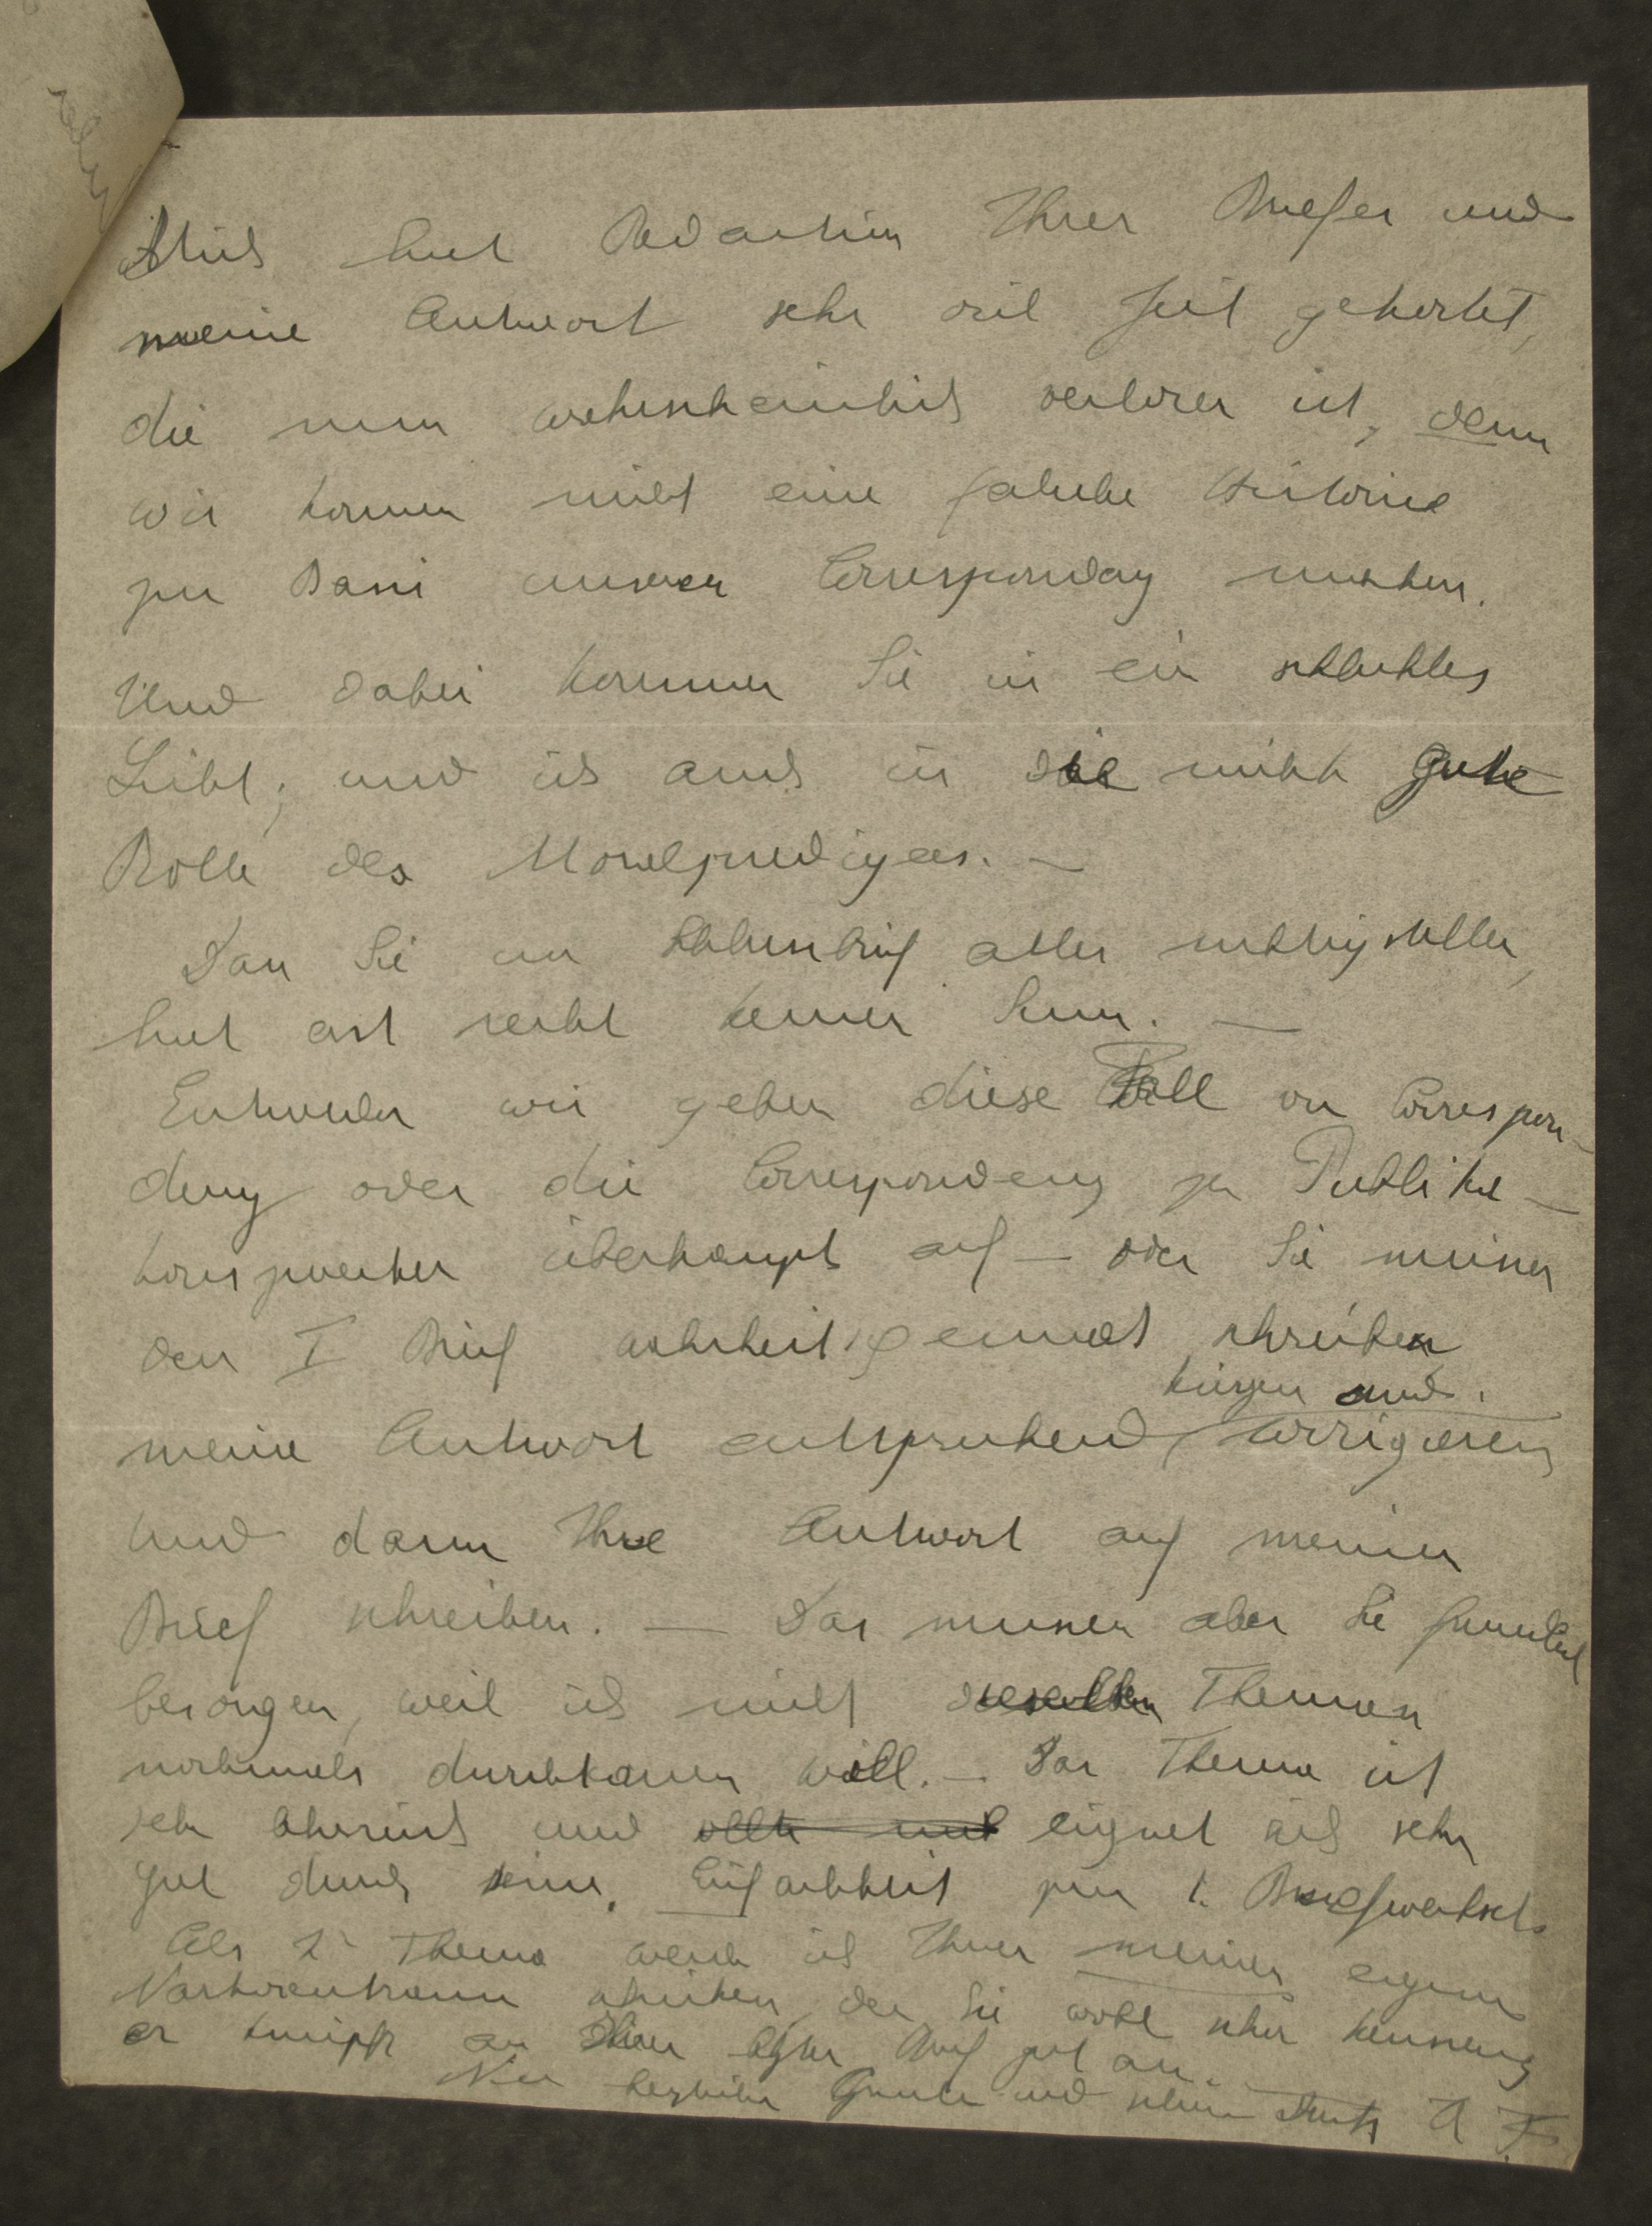 Mich hat Redaction Ihrer Briefes und
meine Antwort sehr viel Zeit gekostet,
die nun wahrscheinlich verloren ist, denn
wir können nicht eine falsche Historie
zur Basis unserer Correspondenz machen.
Und dabei kommen Sie in ein schlechtes
Licht, und ich auch in die nicht gute
Rolle des Moralpredigers. —
Dass Sie im Schlussbrief alles richtigstellen,
hat erst recht keinen Sinn. —
Entweder wir geben diese von Correspon-
denz oder die Correspondenz zu Publika-
tionszwecken überhaupt auf — oder Sie müssen
den I Brief wahrheitsgemäss schreiben
kürzen und
meine Antwort entsprechend corrigieren
und dann Ihre Antwort auf meinen
Brief schreiben. — Das müssen aber Sie
besorgen, weil ich nicht dieselben Themen
nochmals durchkauen will. — Das Thema ist
sehr und eignet sich sehr
gut durch seine Einfachheit zum 1. Briefwechsel.
Als 2. Thema werde ich Ihnen meinen eigenen
schicken, den Sie wohl schon kennen
er knüpft an Ihren Brief gut an.
Nur herzliche Grüsse und schönen Dank A F.